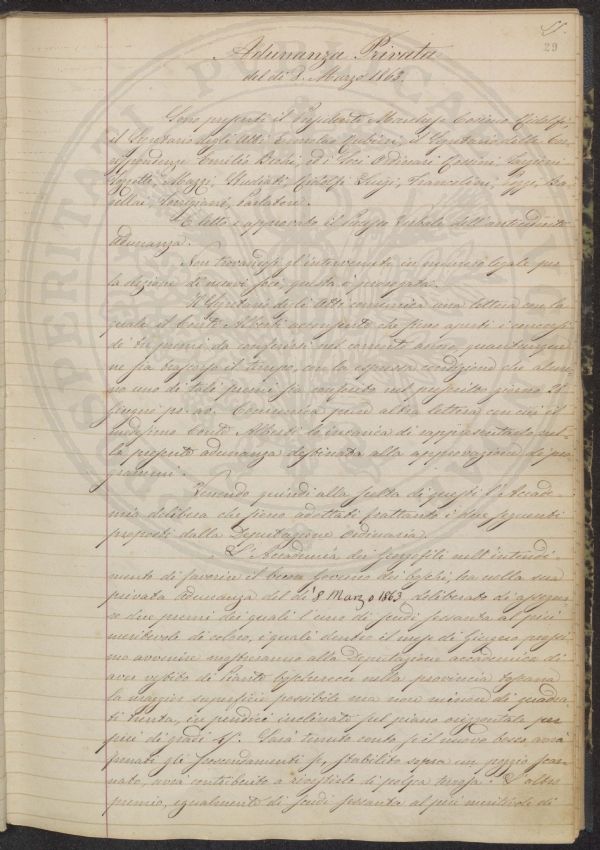 29
Adunanza Privata
del dì 8. Marzo 1863.
Sono presenti il Presidente Marchese Cosimo Ridolfi,
il Segretario degli Atti Rubieri, il Segretario delle Cor-
rispondenze Emilio ed i Soci Ordinari
Mazzi, Studiati, Ridolfi Luigi, Franceschi,
Parlatore.
È letto e approvato il Processo Verbale dell'antecedente
adunanza.
Non trovandosi gl'intervenuti in numero legale per
la elezione di nuovi soci, questa è prorogata.
Il Segretario degli Atti comunica una lettera con la
quale il Conte Alberti acconsente che sieno aperti i concorsi
di tre premi da conferirsi nel corrente anno, quantunque
ne sia trascorso il tempo, con la espressa condizione che alcu-
no di tali premi sia conferito nel prefisso giorno 24
Giugno pr. av. Comunica pure altra lettera con cui il
medesimo Conte Alberti lo incarica di rappresentarlo nel-
la presente adunanza destinata alla approvazione di pro-
grammi.
Venendo quindi alla scelta di questi l'Accade-
mia delibera che sieno adottati frattanto i due seguenti
proposti dalla Deputazione Ordinaria.
L'Accademia dei Georgofili nell'intendi-
mento di favorire il buon governo dei boschi, ha nella sua
privata adunanza del dì 8 Marzo 1863 deliberato di assegna-
re due premi dei quali l'uno di scudi sessanta al più
meritevole di coloro, i quali dentro il mese di Giugno prossi-
mo avvenire mostreranno alla Deputazione accademica di
aver vestito di piante boscherecce nella provincia toscana
la maggior superficie possibile ma non minore di quadra-
ti trenta, in pendice inclinata sul piano orizzontale per
più di gradi 45. Sarà tenuto conto se il nuovo bosco avrà
frenati gli scoscendimenti se, stabilito sopra un poggio scar-
nato, avrà contribuito a rivestirlo di terra. L'altro
premio, egualmente di scudi sessanta al più meritevole di